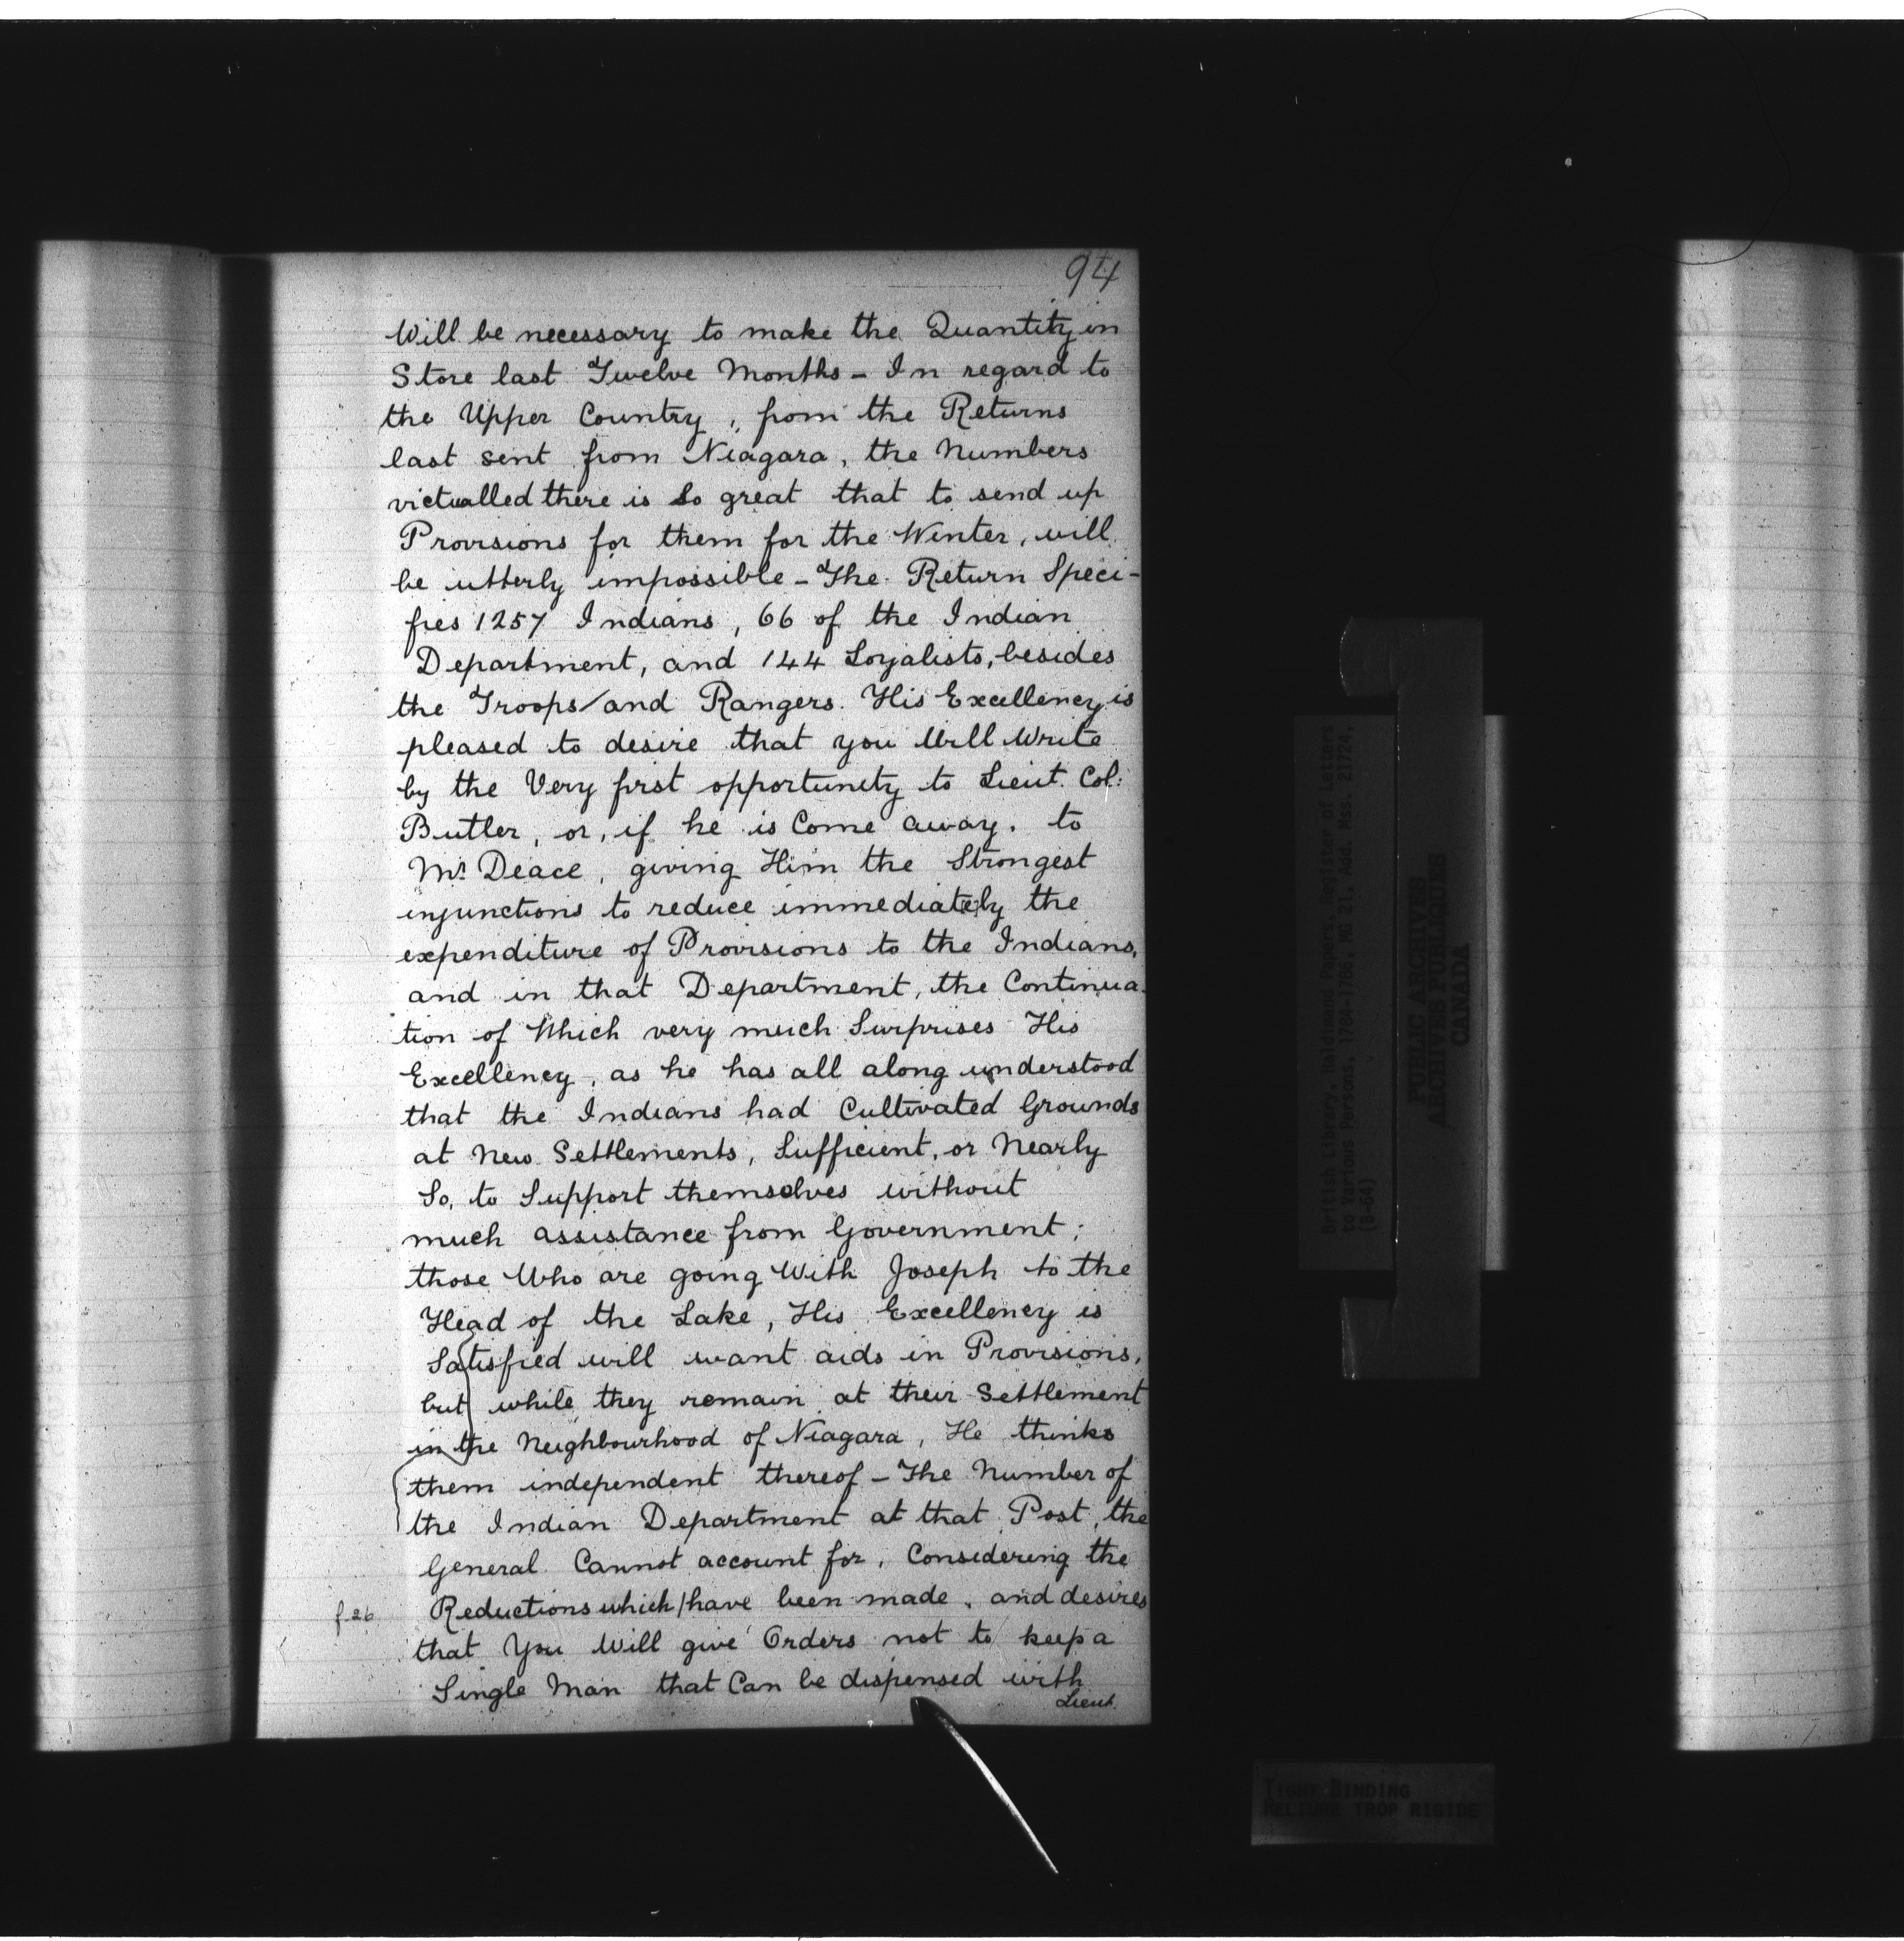 94
Will be necessary to make the Quantity in
Store last Twelve Months - In regard to
the Upper Country, from the Returns
last sent from Niagara, the Numbers
victualled there is So great that to send up
Provisions for them for the Winter, will
be utterly impossible - The Return Speci-
fies 1257 Indians, 66 of the Indian
Department, and 144 Loyalists, besides
the Troops/and Rangers. His Excellency is
pleased to desire that you Will Write
by the Very first opportunity to Lieut. Col:
Butler, or, if he is Come away, to
Mr. Deace, giving Him the Strongest
injunctions to reduce immediately the
expenditure of Provisions to the Indians,
and in that Department, the Continua-
tion of Which very much Surprises His
Excellency, as he has all along understood
that the Indians had Cultivated Grounds
at New Settlements, Sufficient, or Nearly
So, to Support themselves without
much assistance from Government;
those Who are going With Joseph to the
Head of the Lake, His Excellency is
Satisfied will want aids in Provisions,
but while they remain at their Settlement
in the Neighbourhood of Niagara, He thinks
them independent thereof - The Number of
the Indian Department at that Post, the
General Cannot account for, Considering the
f. 26 Reductions which/have been made, and desires
that You Will give Orders not to keep a
Single Man that Can be dispensed with
Lieut.
British Library, Haldimand Papers, Register of Letters
to Various Persons, 1784-1786, MG 21, Add. Mss. 21724,
(B-64)
PUBLIC ARCHIVES
ARCHIVES PUBLIQUES
CANADA
TIGHT BINDING
RELIURE TROP RIGIDE